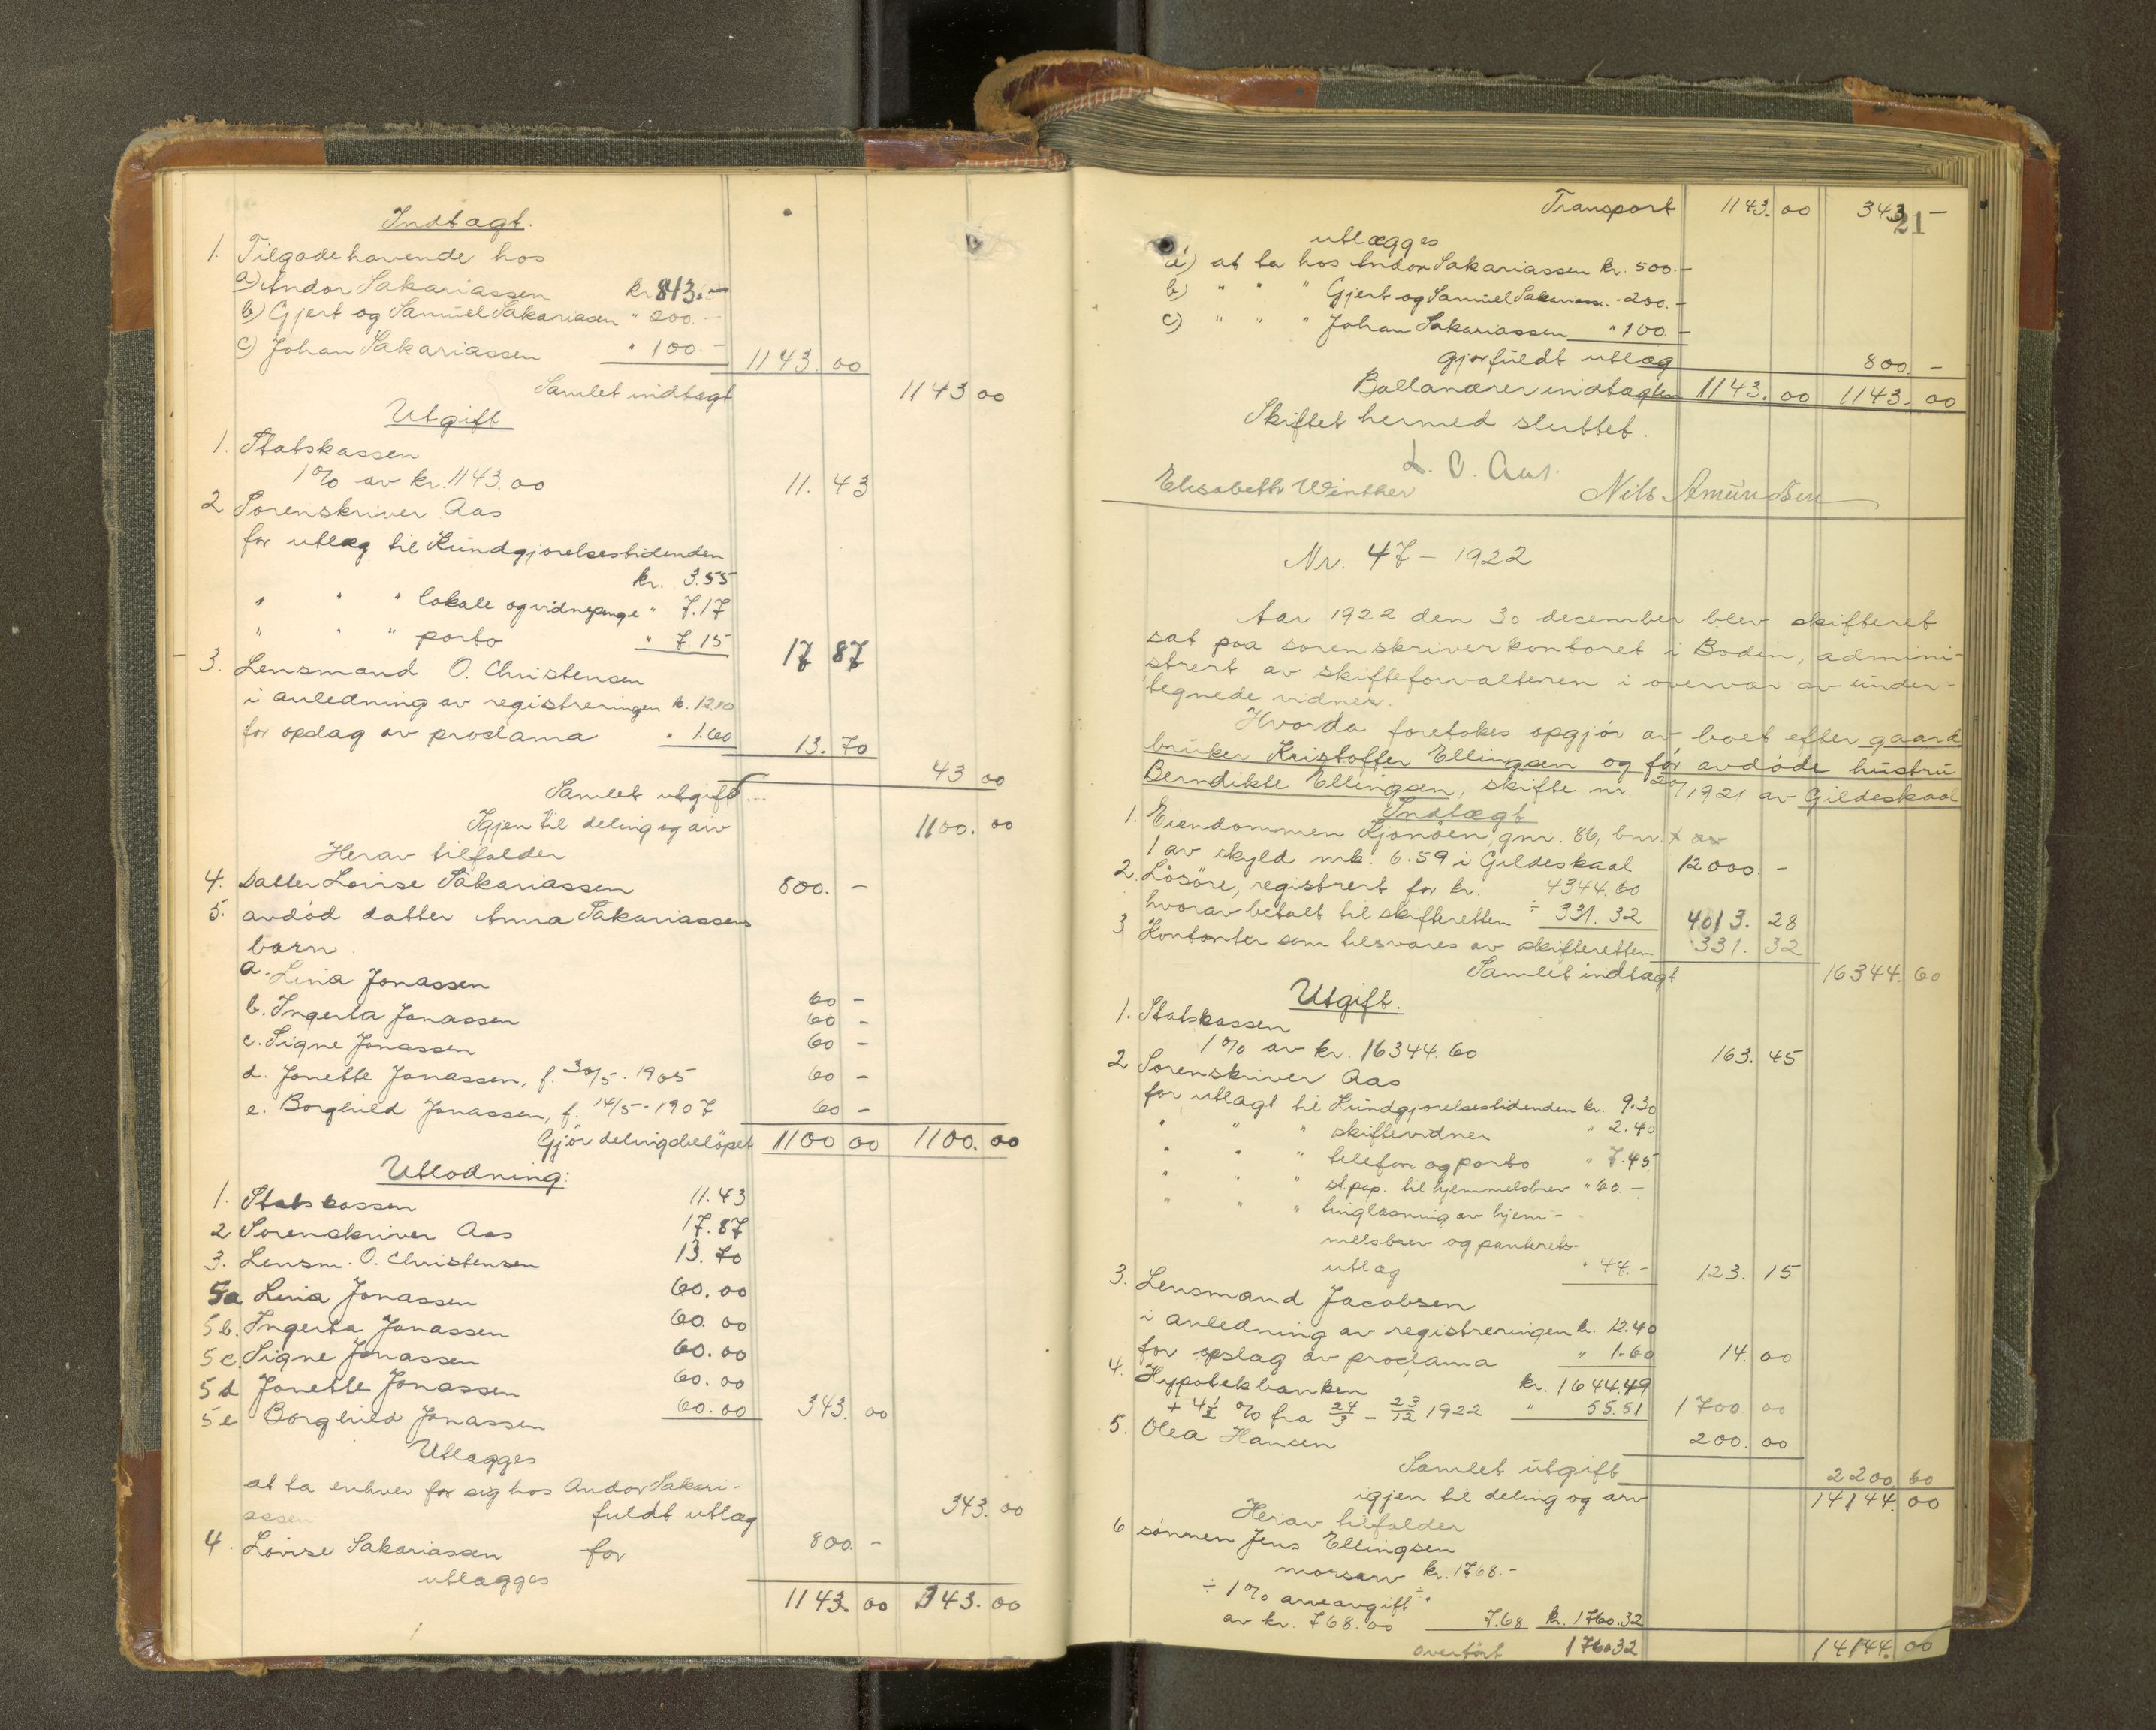 Indtægt.
1. Tilgodehavende hos
a) Andor Sakariassen kr 843.-
b) Gjert og Samuel Sakariasen " 200.-
c) Johan Sakariassen " 100.- 1143. 00
Samlet indtægt 1143 00
Utgift
1. Statskassen
1% av kr. 1143.00 11. 43
2 Sorenskriver Aas
for utlæg til Kundgjørelsestidenden
kr. 3.55
" " " lokale og vidnepenge " 7.17
" " " porto " 7.15 17 87
3. Lensmand O. Christensen
i anledning av registreringen k. 12.10
for opslag av proclama " 1.60 13. 70
43 00
Samlet utgift...
Igjen til deling og arv 1100. 00
Herav tilfalder
4. Datter Lovise Sakariassen 800. -
5. avdød datter Anna Sakariassens
barn
a. Lina Jonassen 60 -
b. Ingerta Jonassen 60 -
c. Signe Jonassen 60 -
d. Jonette Jonassen, f. 30/5 - 1905 60 -
e. Borghild Jonassen, f. 14/5 - 1907 60 -
Gjør delingsbeløpet 1100 00 1100. 00
Utlodning:
1. Statskassen 11.43
2 Sorenskriver Aas 17.87
3. Lensm. O. Christensen 13.70
5a Lina Jonassen 60.00
5b. Ingerta Jonassen 60.00
5c. Signe Jonassen 60.00
5d Jonette Jonassen 60.00
5e Borghild Jonassen 60.00 343. 00
Utlægges
at ta enhver for sig hos Andor Sakari-
assen fuldt utlæg 343. 00
4. Lovise Sakariassen for 800. -
utlægges
1143. 00 343. 00
Transport 1143. 00 343 -
21
utlægges
a) at ta hos Andor Sakariassen kr. 500.-
b) " " " Gjert og Samuel Sakariass. - 200.-
c) " " " Johan Sakariassen " 100 -
gjør fuldt utlæg 800. -
Ballancerer indtægten 1143. 00 1143. 00
Skiftet hermed sluttet.
L. O. Aas.
Elisabeth Winther Nils Amundsen
Nr. 47 - 1922
Aar 1922 den 30 december blev skifteret
sat paa sorenskriverkontoret i Bodin, admini-
strert av skifteforvalteren i overvær av under-
tegnede vidner.
Hvorda foretokes opgjør av boet efter gaard
bruker Kristoffer Ellingsen og før avdøde hustru
Berndikte Ellingsen, skifte nr. 20/1921 av Gildeskaal
Indtægt
1. Eiendommen Kjonøen, gnr. 86, bnr.
1 av skyld mk. 6.59 i Gildeskaal 12000. -
2. Løsøre, registrert for kr. 4344.60
hvorav betalt til skifteretten ÷ 331.32 4013. 28
3 Kontanter som tilsvares av skifteretten 331. 32
Samlet indtægt 16344. 60
Utgift.
1. Statskassen
1% av kr. 16344.60 163. 45
2 Sorenskriver Aas
for utlagt til Kundgjørelsestidenden kr. 9.30
" " " skiftevidner " 2.40
" " " telefon og porto " 7.45
" " " st.pap. til hjemmelsbrev " 60.-
" " " tinglæsning av hjem-
melsbrev og panterets-
utlæg " 44.- 123. 15
3. Lensmand Jacobsen
i anledning av registreringen k. 12.40
for opslag av proclama " 1.60 14. 00
4. Hypotekbanken kr. 1644.49
+ 4½ % fra 24/3 - 23/12 1922 " 55.51 1700. 00
5. Olea Hansen 200. 00
Samlet utgift 2200. 60
igjen til deling og arv 14144. 00
Herav tilfalder
6 sønnen Jens Ellingsen
morsarv kr. 1768.-
÷ 1% arveavgift
av kr. 768.00 7.68 kr. 1760.32
overført 1760.32 14144. 00